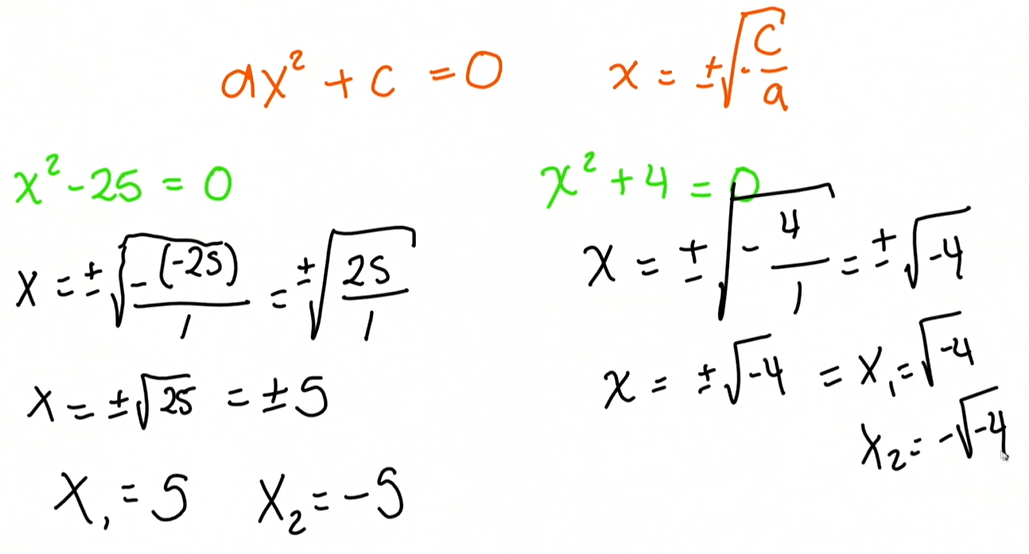 ax² + c = 0
x = ±√(-c/a)
x² - 25 = 0
x = ±√(-(-25)/1) = ±√(25/1)
x = ±√25 = ±5
x₁ = 5 x₂ = -5
x² + 4 = 0
x = ±√(-4/1) = ±√-4
x = ±√-4 = x₁ = √-4
x₂ = -√-4